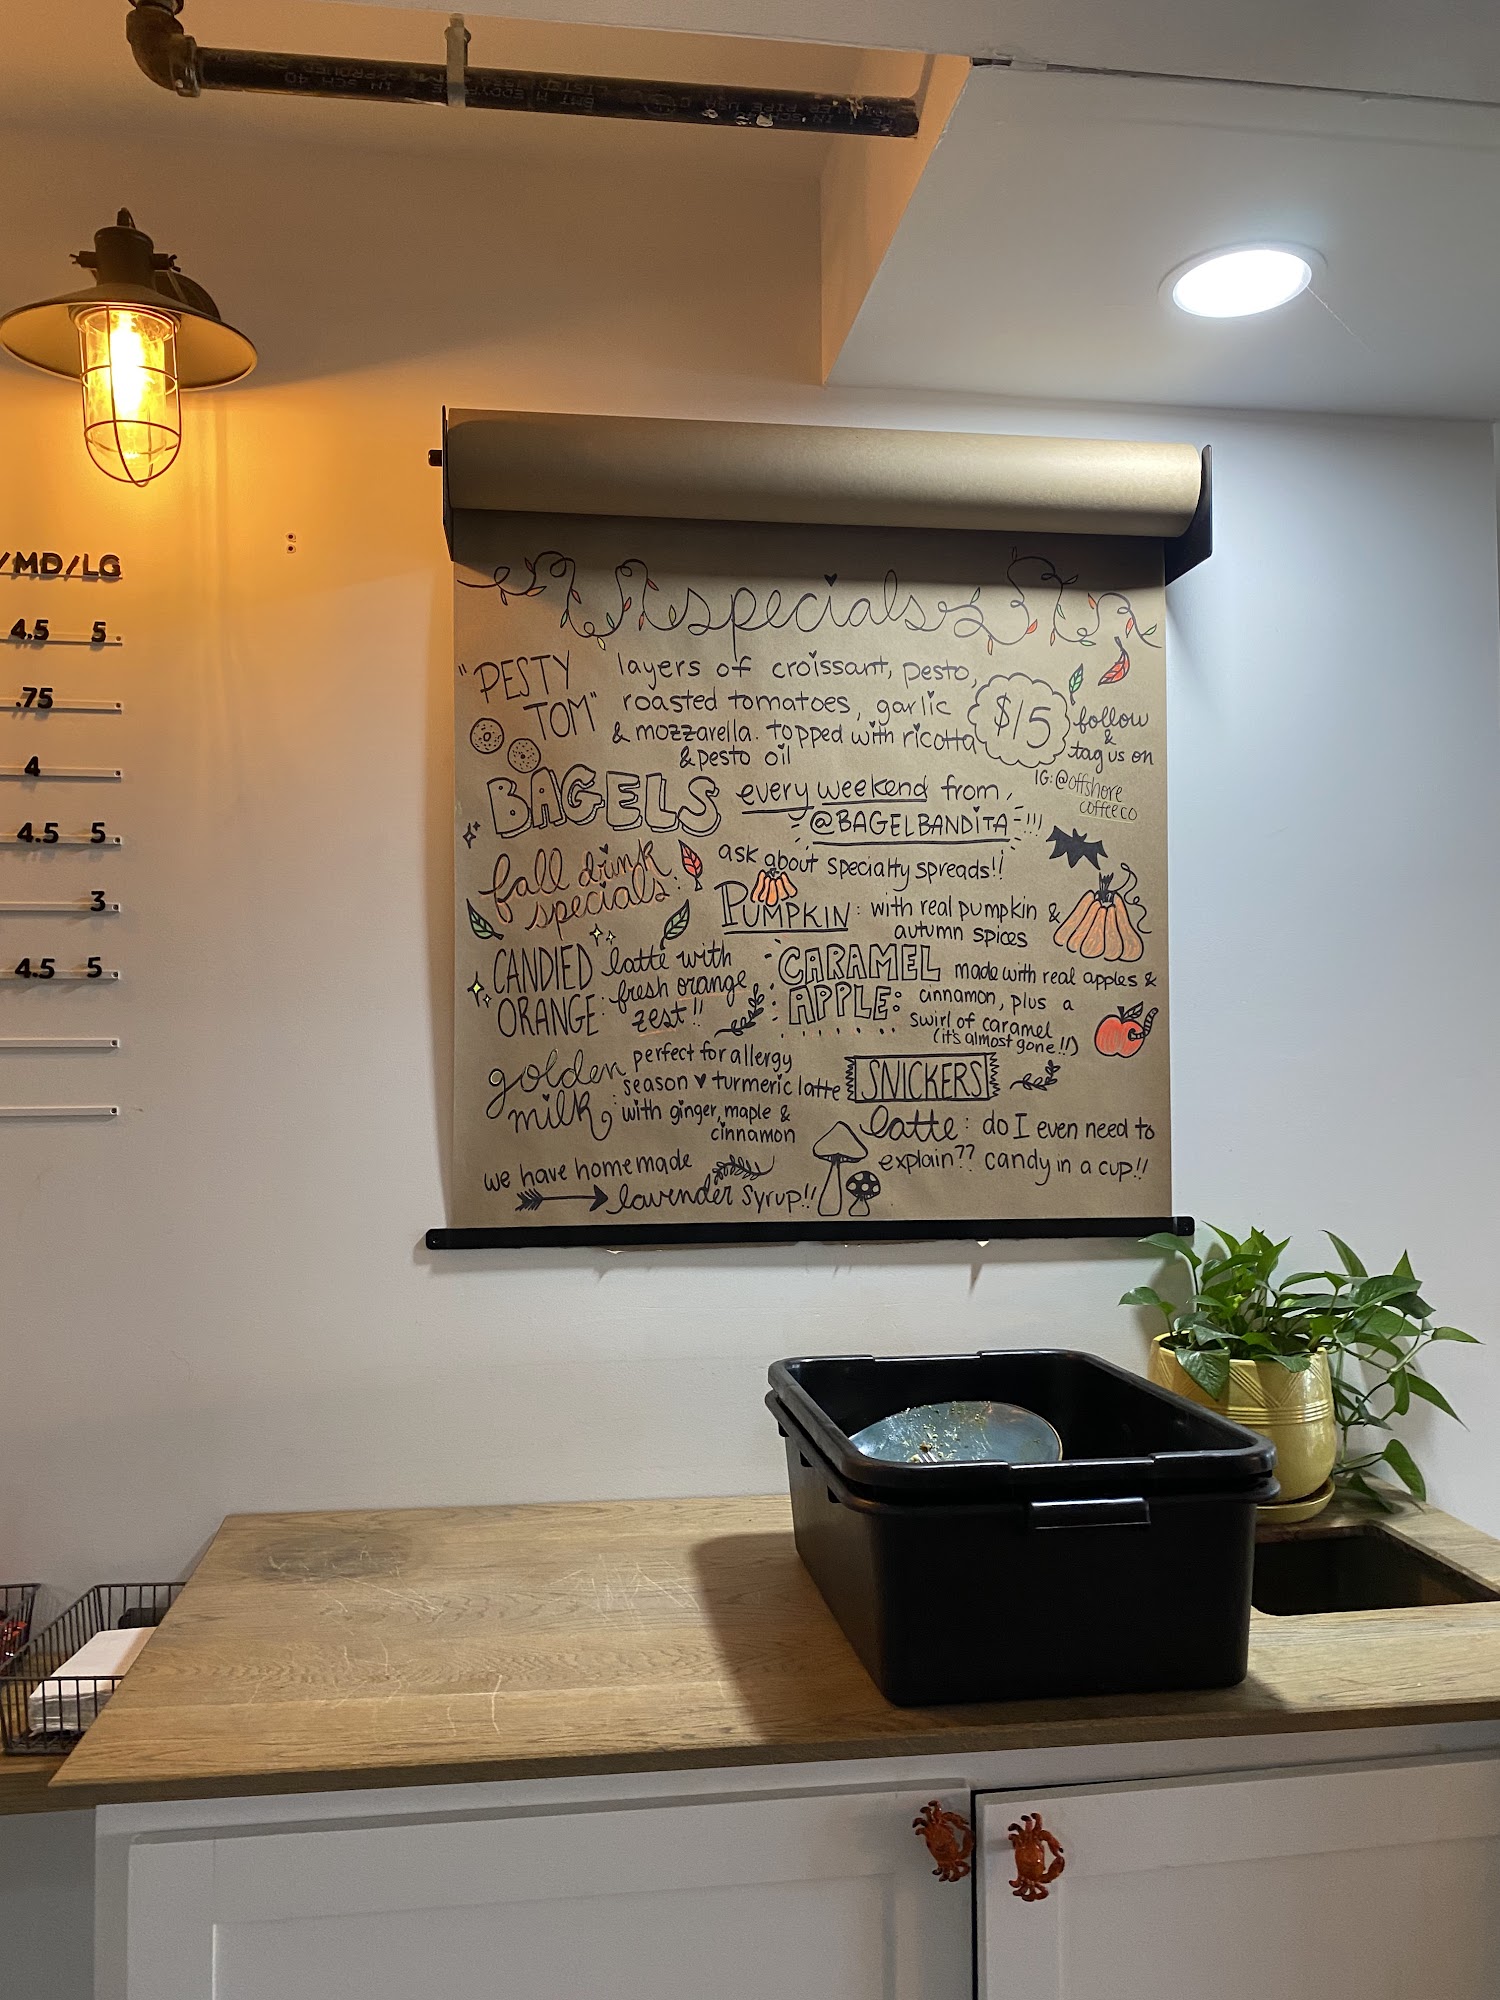 /MD/LG
4.5 5
.75
4
4.5 5
3
4.5 5
specials
"PESTY
TOM"
layers of croissant, pesto,
roasted tomatoes, garlic
& mozzarella. topped with ricotta
& pesto oil
$15
follow
&
tag us on
IG: @offshore
coffeeco
BAGELS
every weekend from
@BAGELBANDITA !!!
ask about specialty spreads!!
fall drink
specials:
PUMPKIN: with real pumpkin &
autumn spices
CANDIED
ORANGE:
latte with
fresh orange
zest!!
CARAMEL
APPLE:
made with real apples &
cinnamon, plus a
swirl of caramel
(it's almost gone!!)
golden
milk:
perfect for allergy
season ♥ turmeric latte
with ginger, maple &
cinnamon
SNICKERS
latte: do I even need to
explain?? candy in a cup!!
we have homemade
lavender syrup!!